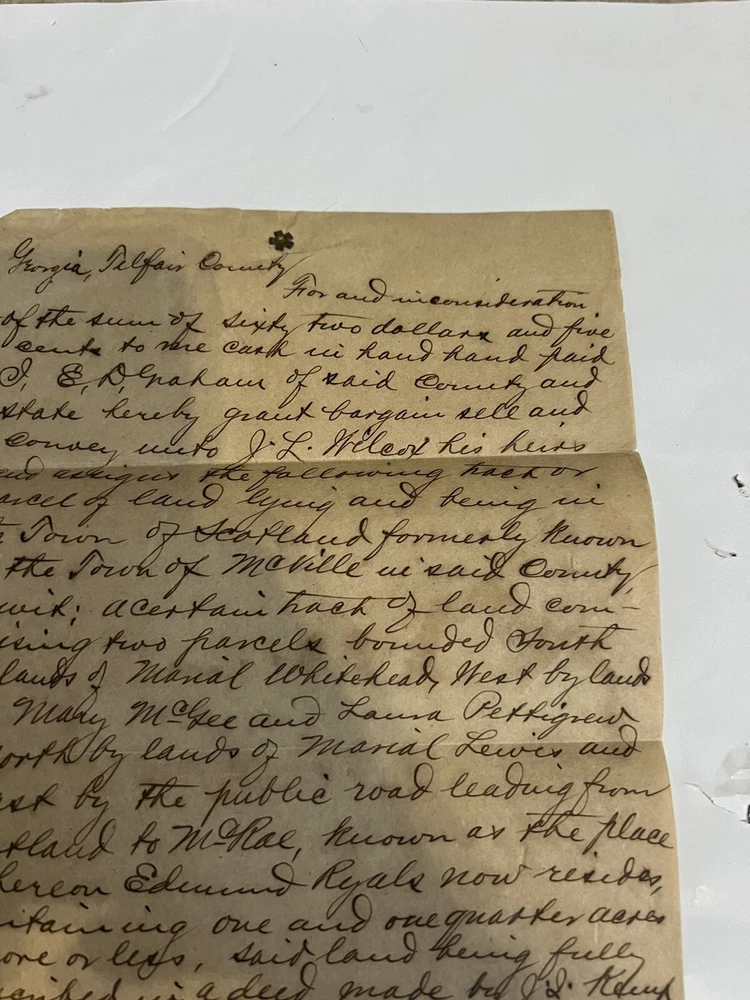 Georgia, Telfair County
For and in consideration
of the sum of sixty two dollars and five
cents to me cash in hand hand paid
I, E. D. Graham of said County and
state hereby grant bargain sell and
convey unto J. L. Wilcox his heirs
and assigns the following tract or
arcel of land lying and being in
e Town of Scotland formerly known
the Town of McVille in said County,
wit; a certain tract of land com-
ising two parcels bounded South
lands of Marial Whitehead, West by lands
Mary McGee and Laura Pettigrew
orth by lands of Marial Lewis and
ast by the public road leading from
tland to McRae, known as the place
hereon Edmund Ryals now resides,
ntaining one and one quarter acres
ore or less, said land being fully
scribed in a deed made by J. L. Kemp